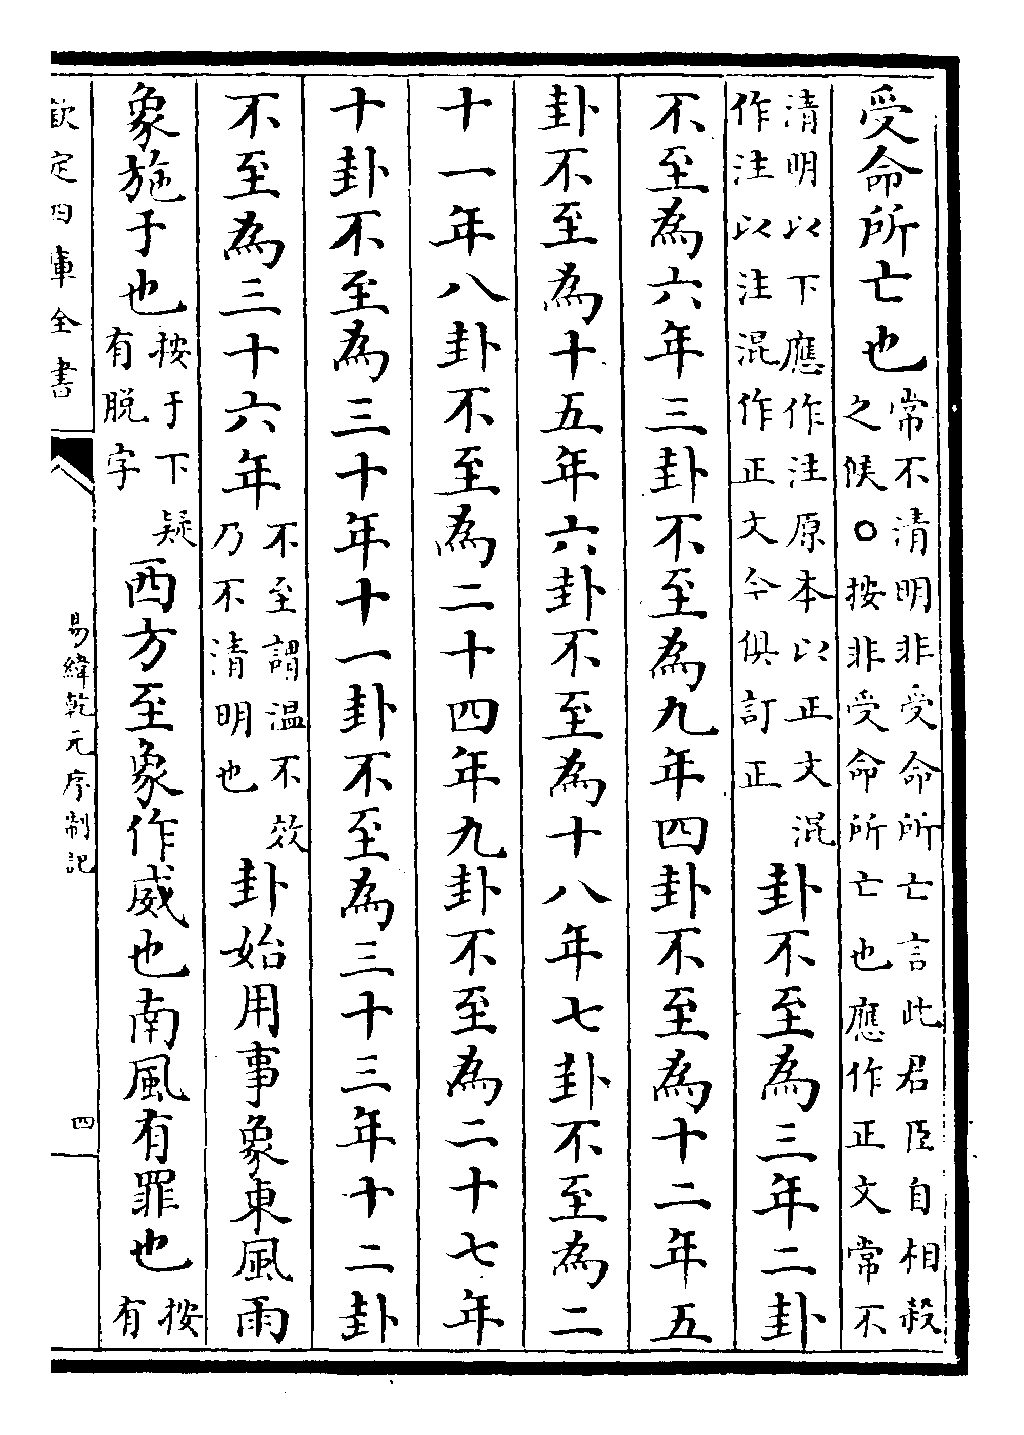 受命所亡也常不清明非受命所亡言此君臣自相殺之候○按非受命所亡也應作正文常不
清明以下應作注原本以正文混作注以注混作正文今俱訂正卦不至為三年二卦
不至為六年三卦不至為九年四卦不至為十二年五
卦不至為十五年六卦不至為十八年七卦不至為二
十一年八卦不至為二十四年九卦不至為二十七年
十卦不至為三十年十一卦不至為三十三年十二卦
不至為三十六年不至謂温不效乃不清明也卦始用事象東風雨
象施于也按于下疑有脱字西方至象作威也南風有罪也按有
欽定四庫全書
易緯乾元序制記
四